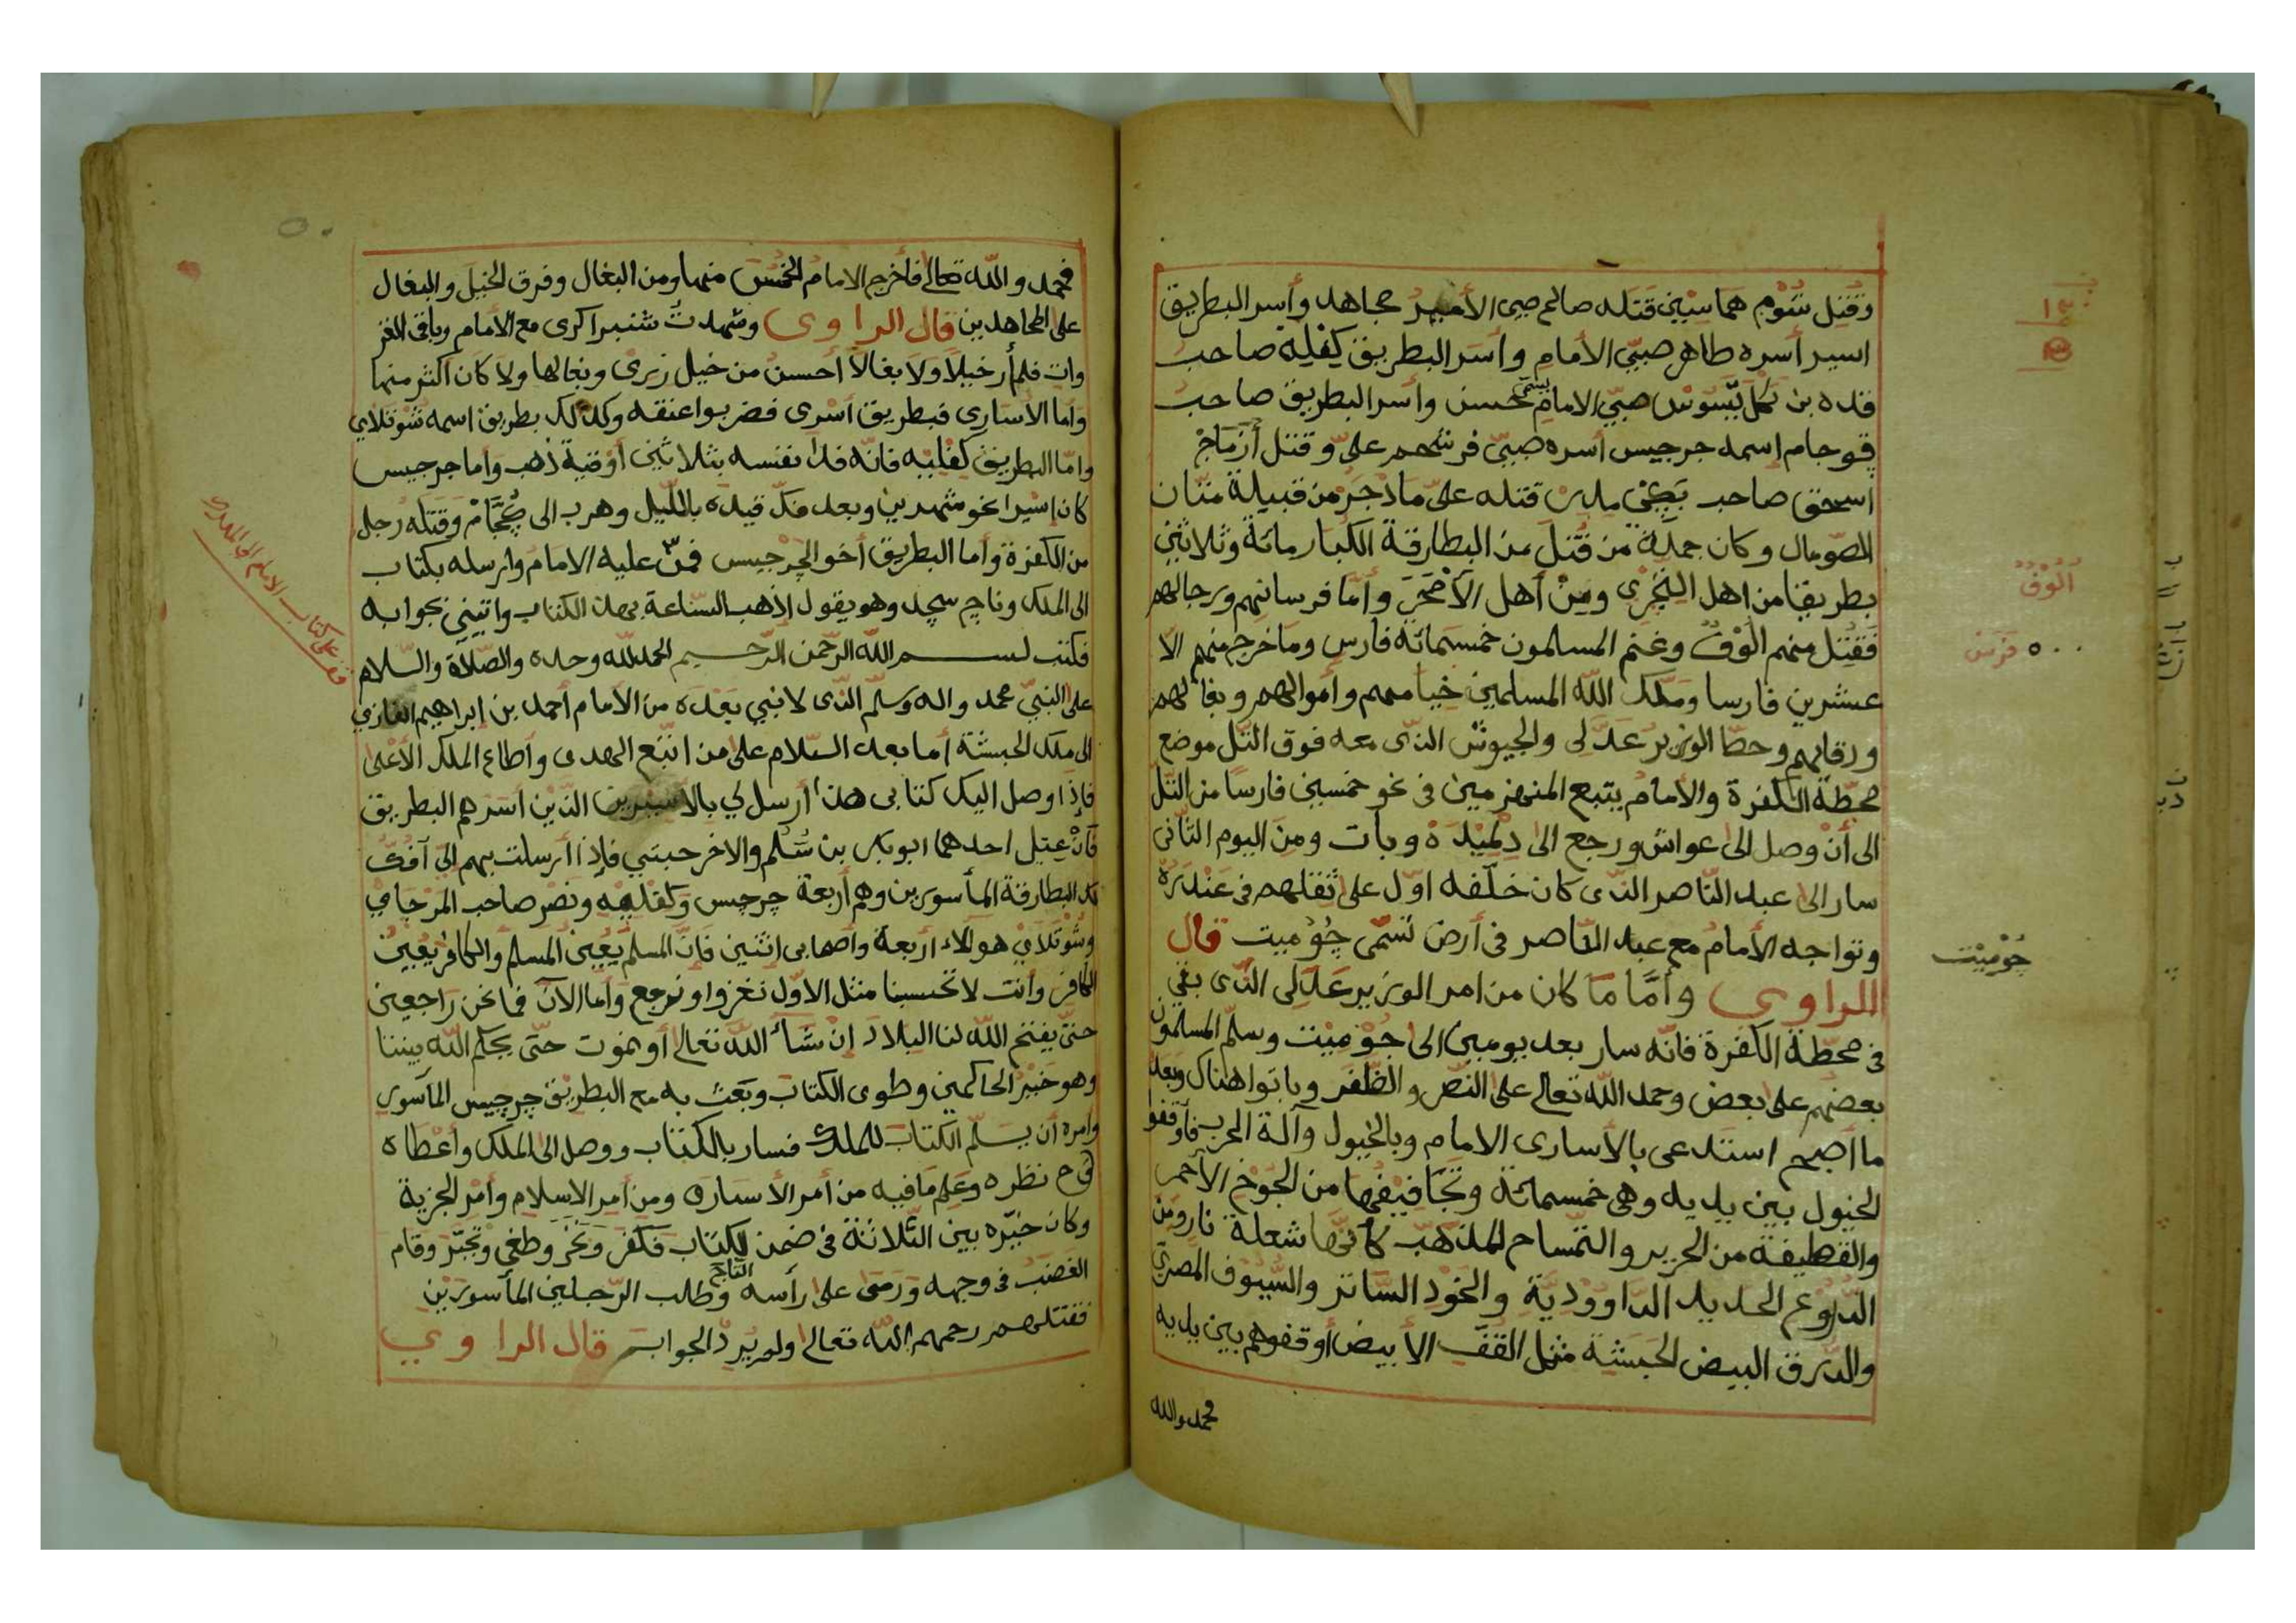 وقتل شوم هماسيين قتله صالح صبي الأمير مجاهد وأسر البطريق
اسير أسره طاهر صبّي الأمام وأسر البطريق كِفْلِهْ صاحب
قده بن صبّي الامام يسمى حسن وأسر البطريق صاحب
قوجام اسمه جرجيس أسره صبيّ فرشحم علىّ وقتل أَزْمَاجْ
اسحق صاحب قتله علىّ مادجر من قبيلة متّان
الصّومال وكان جملة من قُتل من البطارقة الكبار مائة وثلاثين
بطريقا من اهل التِجْرى ومِنْ أهل الأَمْحَرَ وأمّا فرسانهم ورجالهم
فقتل منهم أُلُوفٌ وغنم المسلمون خمسمائة فارس وما خرج منهم الا
عشرين فارسا وملّك الله المسلمين خيامهم وأموالهم وبغالهم
ورقابهم وحطّا الوزير عَدَّلى والجيوش الذّى معه فوق التّل موضع
محطّة الكفرة والأمام يتبع المنهزمين فى نحو خمسين فارسًا من التّل
الى أنْ وصل الى عواش ورجع الى وبات ومن اليوم الثّانى
سار الى عبد النّاصر الذّى كان خلّفه اوّل على ثقلهم فى عَنْدَرَهْ
وتواجه الأمام مع عبد النّاصر فى أرض تُسَمّى جُوْمِيت قال
الراوى وأمَّا مَا كان من امر الوزير عَدَّلِى الذّى بقى
فى محطّة الكفرة فانّه سار بعد يومين الى جُوْمِيْت وسلّم المسلمون
بعضهم على بعض وحمد الله تعالى على النّصر والظّفر وباتوا هناك وبعد
ما أصبح استدعى بالأسارى الامام وبالخيول وآلة الحرب فأوقفو
الخيول بين يديه وهى خمسمائة وتجَافيفُها من الجُوْخ الأحمر
والقطيفة من الحرير والتّمساح المذهّب كأنّها شعلة نار ومن
الدّروع الحديد الدّاووديّة والخود السّاتر والسّيوف المصرّي
والدّرق البيض الحبشيّة مثل القفف الأبيض أوقفوهم بين يديه
فحمد والله
أُلُوْفٌ
٥٠٠ فَرَسْ
جُوْمِيْت
فحمد والله تعالى فأخرج الامام الخُمُسَ منها ومن البغال وفرق الخيل والبغال
على المجاهدين قال الراوى وشهدت شنبرا كرى مع الأمام وباقى الغز
وات فلم أر خيلًا ولا بغالًا أحسن من خيل زبرى وبغالها ولا كان اكثر منها
وأما الأسارى فبطريق أَسْرى فضربوا عنقه وكذلك بطريق اسمه شوتلاي
وامّا البطريق كِفْلِيْه فانّه فدا نفسه بثلاثين أوْقية ذهب واما جرجيس
كان إسيرا نحو شهرين وبعد فكّ قيده بالليل وهرب الى وقتله رجل
من الكفرة وأما البطريق أخو الجِرْجيس فمنّ عليه الامام وارسله بكتاب
الى الملك وناج سجد وهو يقول اذهب السّاعة بهذا الكتاب وائتينى بجوابه
فكتب بسم الله الرّحمن الرّحيم الحمد لله وحده والصّلاة والسّلام
على النبيّ محمد واله وسلّم الذّى لا نبي بعده من الأمام أحمد بن إبراهيم الغازي
الى ملك الحبشة أما بعد السّلام على من اتبع الهدى وأطاع الملك الأعْلى
فإذا وصل اليك كتابى هذا أرسل لي بالأسيرين الذّين اسرهم البطريق
احدهما ابوبكر بن والاخر حبتي فإذا أرسلت بهم اليّ آفكّ
لك البطارقة المأسورين وهم أربعة جرجيس وكفليه ونصْر صاحب
وشُوتلاي هؤلاء أربعة وأصحابى اثنين فَإنّ المسلم يُعِينُ المسلم والكافرُ يُعِينُ
الكافر وأنت لا تحسبنا مثل الأوّل نغزو او نرجع وأما الآن فما نحن راجعين
حتىّ يفتح الله لنا البلاد إنْ شَاءَ الله تعالى أو نموت حتّى يحكم الله بيننا
وهو خَيْرُ الحاكمين وطوى الكتاب وبَعَثَ به مع البطريق جرجيس المأسور
وأمره أن يسلّم الكتابَ للملك فسار بالكتاب ووصل الى الملك وأعْطاه
نظره وعلم مافيه من أمر الأسارى ومن أمر الاسلام وأمر الجزية
وكان خيّره بين الثّلاثة فى ضمن الكتاب فكفر ونَخَرَ وطغى وتجبّر وقام
الغضب فى وجهه وَرَمَى على رأسه التاج وطلب الرّجلين المأسورين
فقتلهم رحمهم الله تعالى ولم يُرِدّ الجواب قال الراوي
قف على كتاب الامام الى